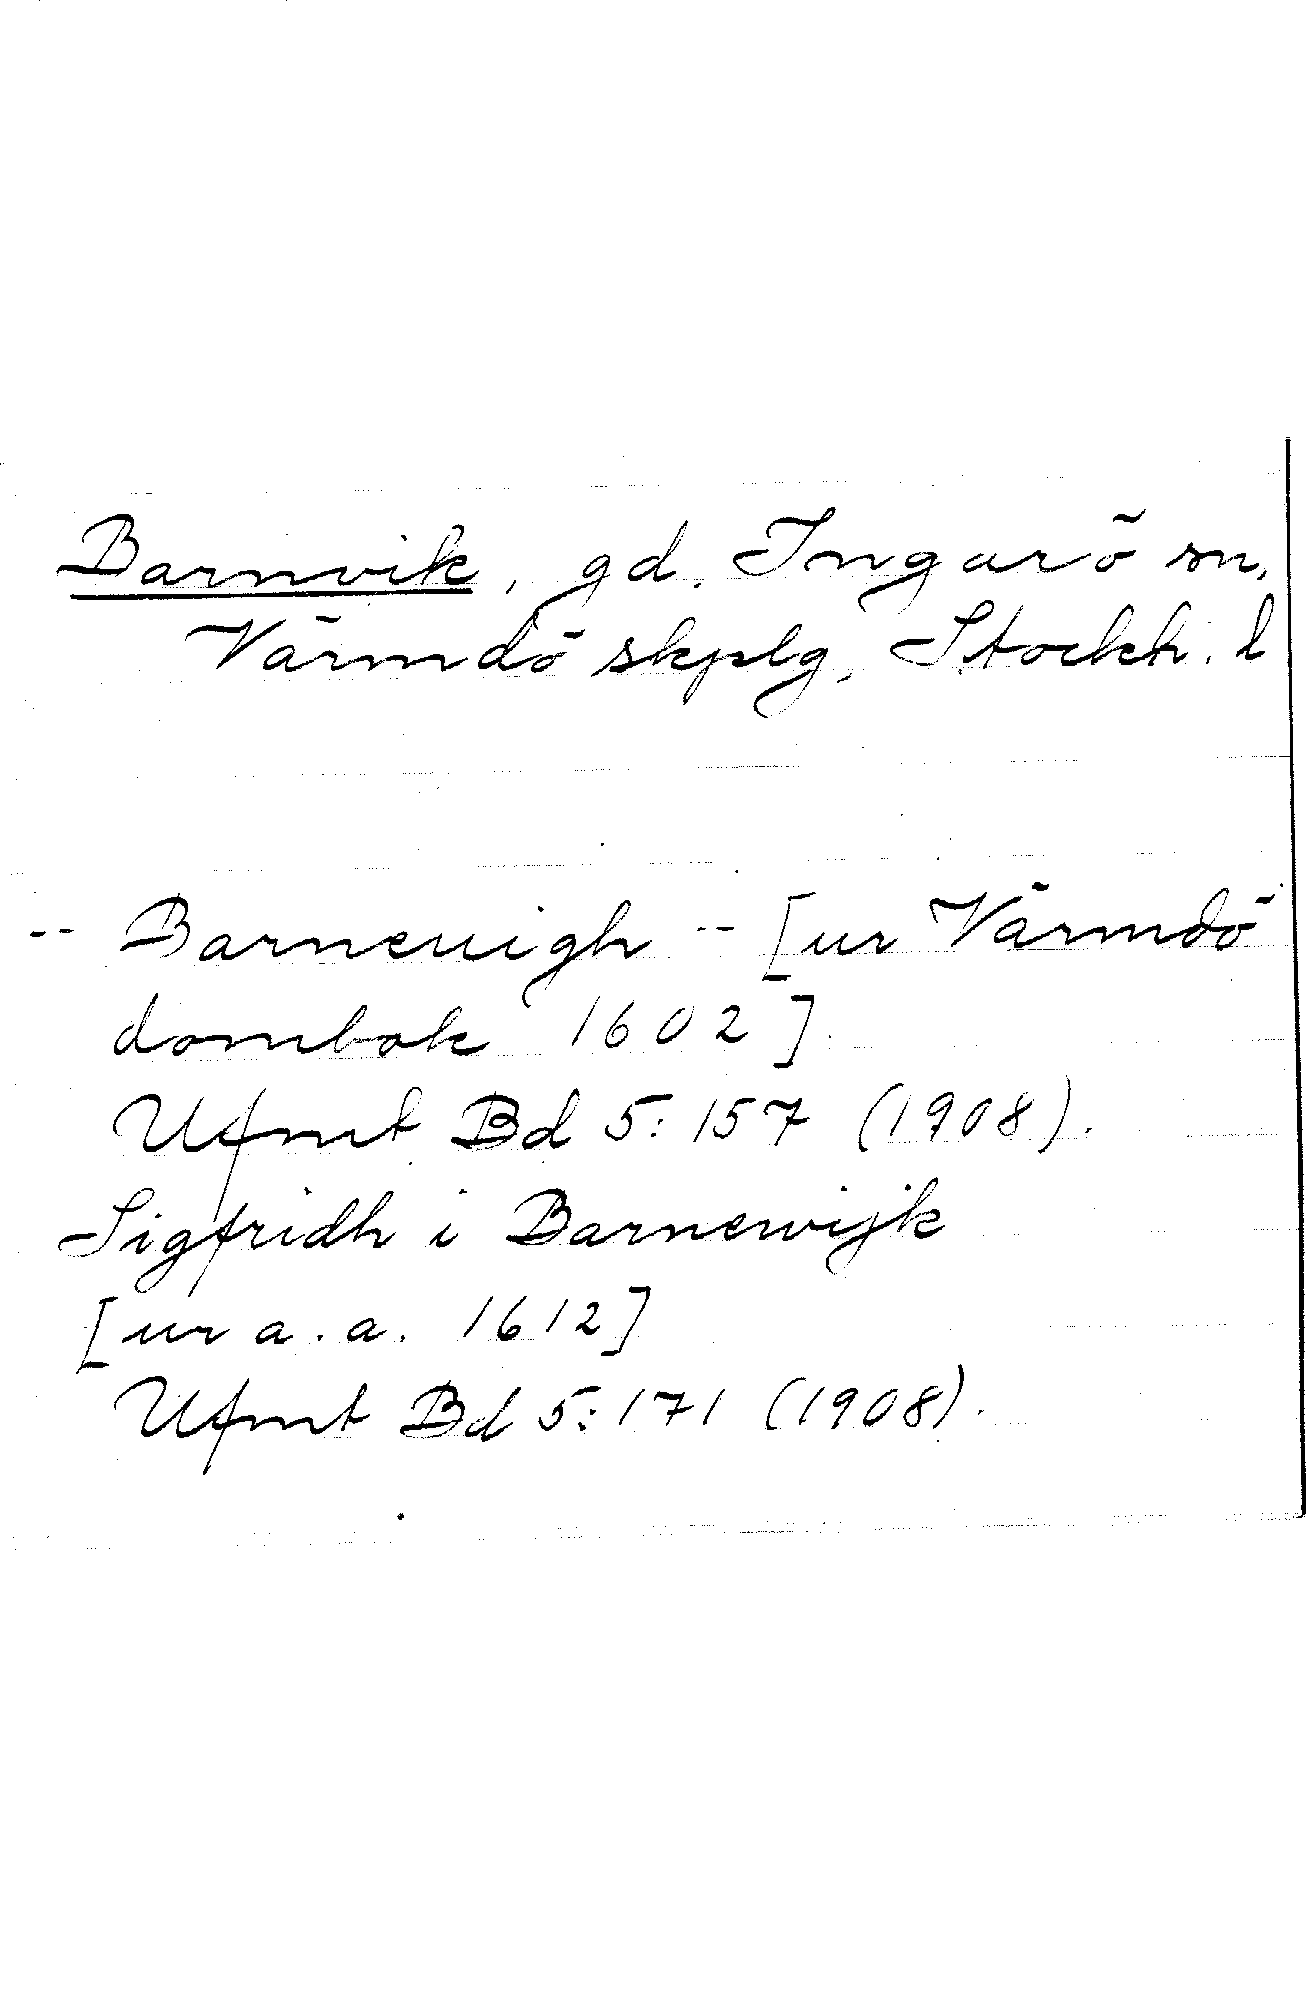 Barnvik, gd, Ingarö sn,
Värmdö skplg, Stockh. l
-- Barneuigh -- [ur Värmdö
dombok 1602]
Ufmt Bd 5:157 (1908).
Sigfridh i Barnewijk
[ur a.a. 1612]
Ufmt Bd 5:171 (1908).